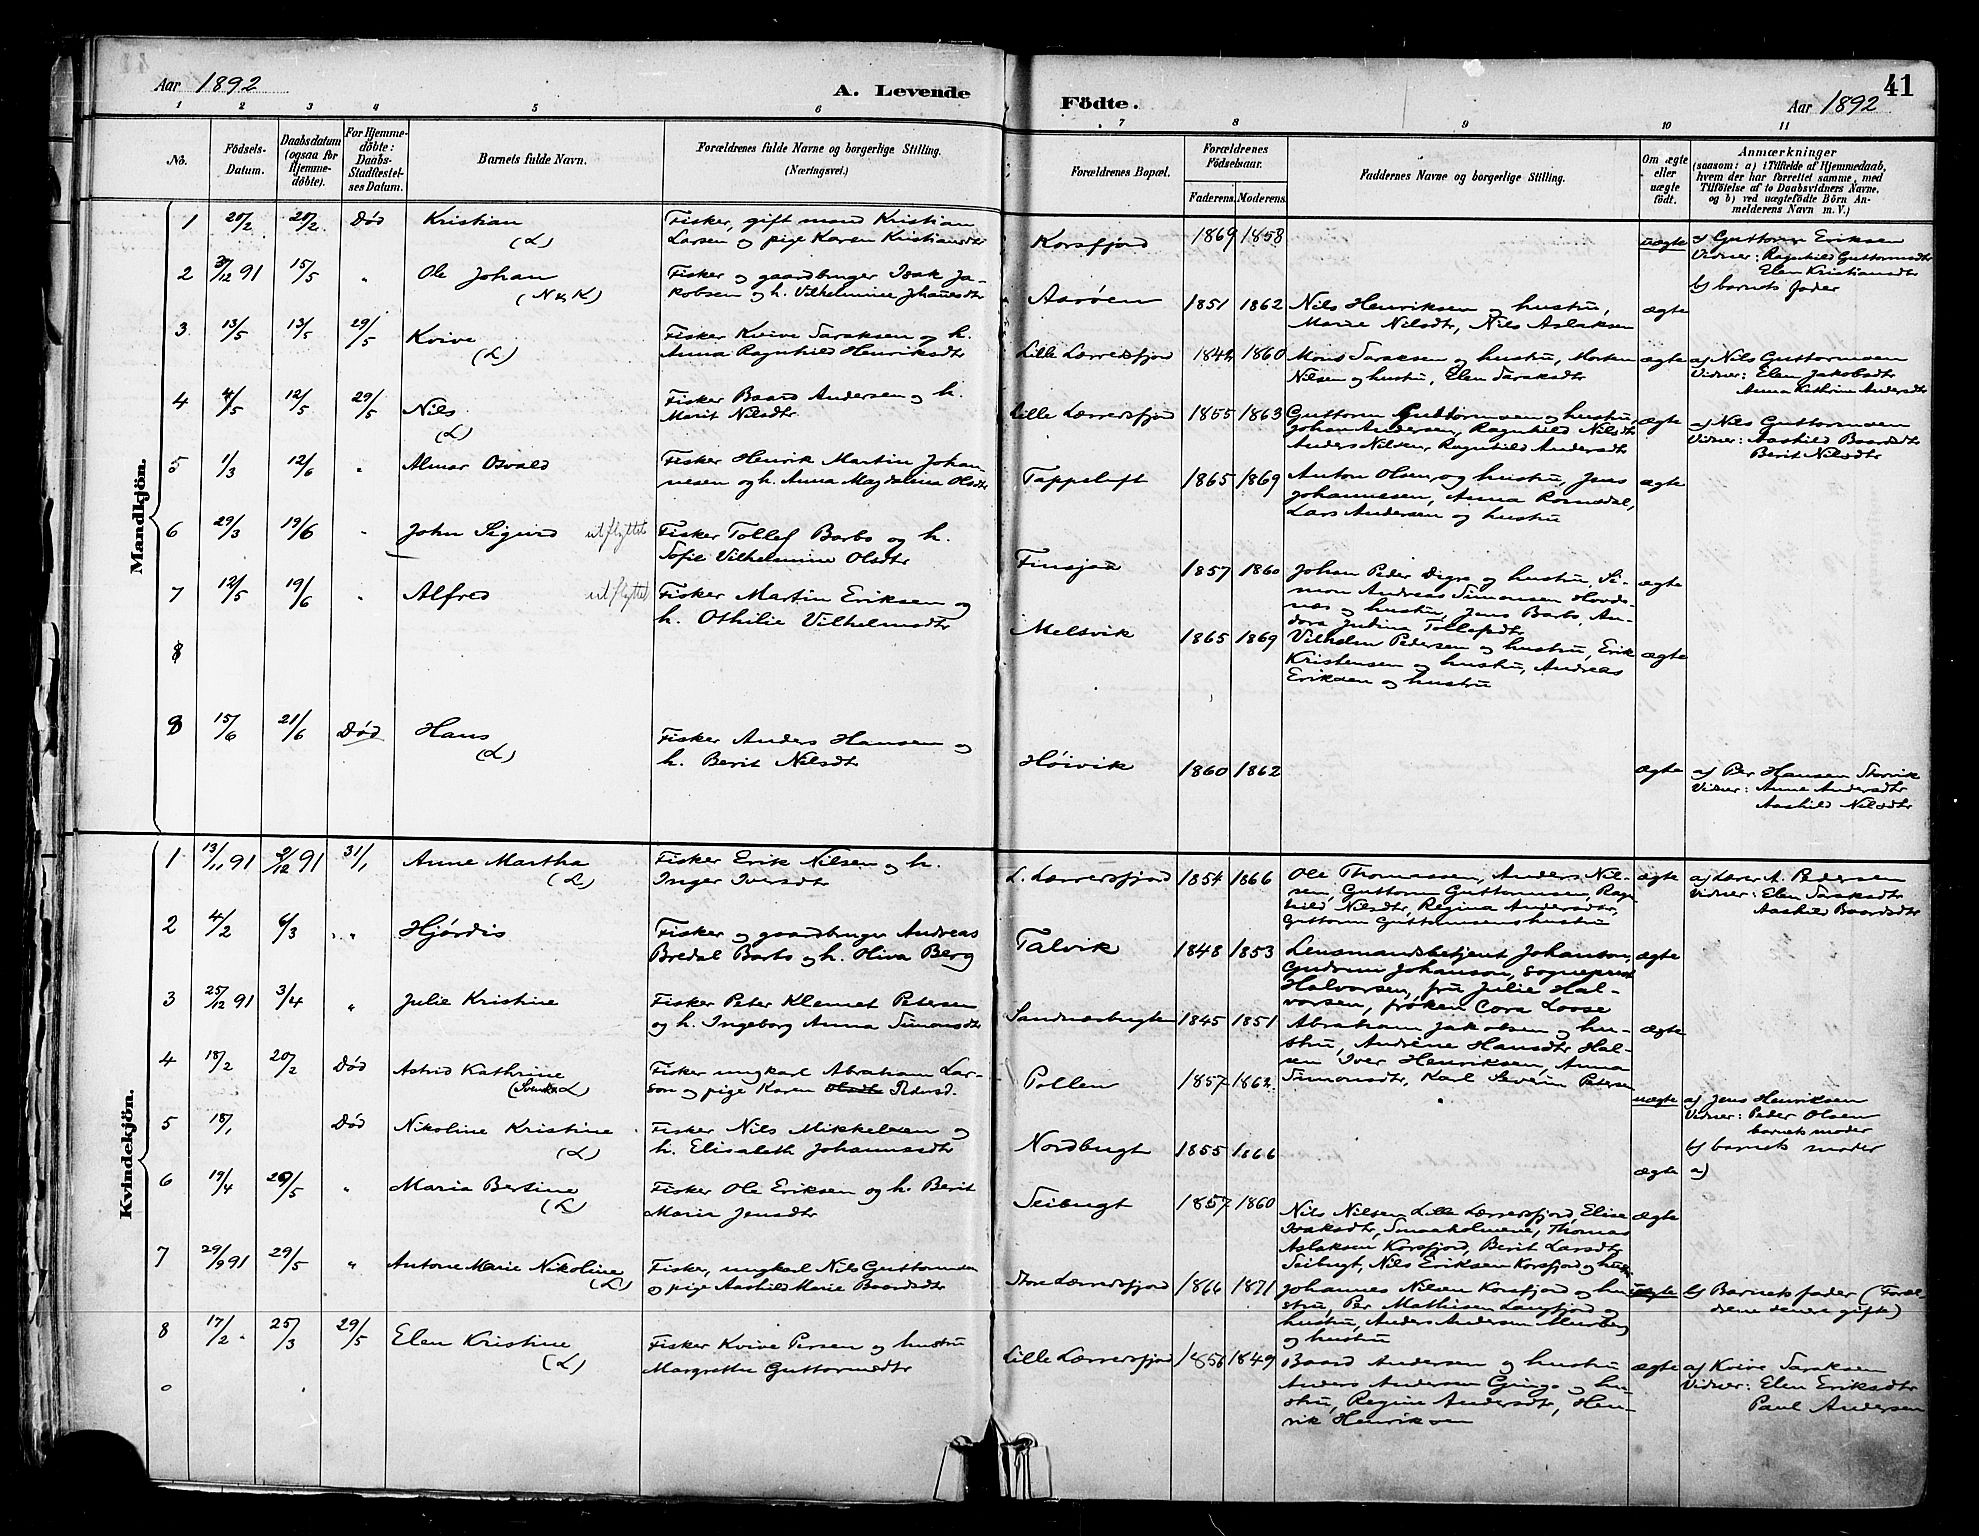 Aar 1892
A. Levende
Födte.
Aar 1892
41
1 2 3 4 5 6 7 8 9 10 11
No.
Födsels-Datum.
Daabsdatum (ogsaa for Hjemmedöbte).
For Hjemmedöbte: Daabs-Stadfæstelses Datum.
Barnets fulde Navn.
Forældrenes fulde Navne og borgerlige Stilling. (Næringsvei.)
Forældrenes Bopæl.
Forældrenes Födselsaar.
Faderens. Moderens.
Faddernes Navne og borgerlige Stilling.
Om ægte eller uægte födt.
Anmærkninger
(saasom: a) i Tilfælde af Hjemmedaab, hvem der har forrettet samme, med Tilföielse af to Daabsvidners Navne, og b) ved uægtefödte Börn Anmelderens Navn m. V.)
Mandkjön.
1 20/2 20/2 Död Kristian (L)
Fisker, gift mand Kristian
Larsen og pige Karen Kristiansdtr
Korsfjord 1869 1858 uægte
a) Guttorm Eriksen
Vidner: Ragnhild Guttormsdtr
Elen Kristiansdtr
b) barnets fader
2 31/12 91 15/5 " Ole Johan (N & K)
Fisker og gaardbruger Isak Ja-
kobsen og h. Vilhelmine Johannesdtr
Aarøen 1851 1862
Nils Henriksen og hustru,
Marie Nilsdtr, Nils Aslaksen
ægte
3 13/5 13/5 29/5 Kvive (L)
Fisker Kvive Saraksen og h.
Anna Ragnhild Henriksdtr
Lille Lærredsfjord 1844 1860
Mons Saraksen og hustru, Morten
Nilsen og hustru, Elen Saraksdtr
ægte
a) Nils Guttormsen
Vidner: Elen Jakobsdtr
Anna Kathrine Andersdtr
4 4/5 12/5 29/5 Nils (L)
Fisker Baard Andersen og h.
Marit Nilsdtr
Lille Lærredsfjord 1855 1863
Guttorm Guttormsen og hustru,
Johan Andersen, Ragnhild Nilsdtr
Anders Nilsen, Ragnhild Andersdtr
ægte
a) Nils Guttormsen
Vidner: Aashild Baardsdtr
Berit Nilsdtr
5 1/3 12/6 " Almar Osvald
Fisker Henrik Martin Johan-
nesen og h. Anna Magdalena Olsdtr
Tappeluft 1865 1869
Anton Olsen og hustru, Jens
Johannesen, Anna Rosmdal,
Lars Andersen og hustru
ægte
6 29/3 19/6 " John Sigurd utflyttet
Fisker Tollef Barbo og h.
Sofie Vilhelmine Olsdtr
Finsjau 1857 1860
Johan Peder Digre og hustru, Si-
mon Andreas Simonsen Hovds-
næs og hustru, Jens Barbo, An-
dora Judina Tollefsdtr
ægte
7 12/5 19/6 " Alfred utflyttet
Fisker Martin Eriksen og
h. Othilie Vilhelmsdtr
Melsvik 1865 1869
Vilhelm Pedersen og hustru, Erik
Kristensen og hustru, Andreas
Eriksen og hustru
ægte
8
8 15/6 21/6 Död Hans (L)
Fisker Anders Hansen og
h. Berit Nilsdtr
Høivik 1860 1862 ægte
a) Per Hansen Storvik
Vidner: Anne Andersdtr
Aashild Nilsdtr
Kvindekjön.
1 13/11 91 2/12 91 31/1 Anne Martha (L)
Fisker Erik Nilsen og h.
Inger Iversdtr
L. Lærredsfjord 1854 1866
Ole Thomassen, Anders Nil-
sen, Guttorm Guttormsen, Ragn-
hild Nilsdtr, Regina Andersdtr,
Guttorm Guttormsens hustru
ægte
a) Lærer A. Pedersen
Vidner: Elen Saraksdtr
Aashild Baardsdtr
2 4/2 6/3 " Hjördis
Fisker og gaardbruger Andreas
Bredal Barbo og h. Oliva Berg
Talvik 1848 1853
Lensmandsbetjent Johanson,
Gudrun Johanson, sogneprest
Halvorsen, fru Julie Hal-
vorsen, fröken Cora Loose
ægte
3 25/12 91 3/4 " Julie Kristine
Fisker Peter Klemet Petersen
og h. Ingeborg Anna Simonsdtr
Sandnæsbugten 1845 1851
Abraham Jakobsen og hu-
stru, Andréne Hansdtr Hal-
sen Iver Henriksen, Anna
Simonsdtr, Karl Severin Petersen
ægte
4 18/2 20/2 Död Astrid Kathrine (Svensk L)
Fisker ungkarl Abraham Lar-
son og pige Karen Olsdtr Pedersd.
Pollen 1857 1862 uægte
a) Jens Henriksen
Vidner: Peder Olsen
barnets moder
b) barnets moder
5 18/1 Död Nikoline Kristine (L)
Fisker Nils Mikkelsen og
h. Elisabeth Johannesdtr
Nordbugt 1855 1866 ægte a)
6 19/4 29/5 " Maria Bertine (L)
Fisker Ole Eriksen og h. Berit
Marie Jensdtr
Seibugt 1857 1860
Nils Nilsen Lille Lærredsfjord, Elise
Isaksdtr, Smaaholmene, Thomas
Aslaksen Korsfjord, Berit Larsdtr
Seibugt, Nils Eriksen Korsfjord og hustru
ægte
7 29/9 91 29/5 " Antone Marie Nikoline (L)
Fisker, ungkarl Nils Guttormsen
og pige Aashild Marie Baardsdtr
Store Lærredsfjord 1866 1871
Johannes Nilsen Korsfjord og hu-
stru, Per Mathisen Langfjord og
hustru, Anders Andersen Murberg
og hustru
uægte
b) Barnets fader (Foræl-
drene senere gifte)
8 17/2 25/3 29/5 Elen Kristine (L)
Fisker Kvive Persen og hustru
Margrethe Guttormsdtr
Lille Lærredsfjord 1856 1849
Baard Andersen og hustru
Anders Andersen Ginge og hu-
stru, Regine Andersdtr, Hen-
rik Henriksen
ægte
a) Kvive Saraksen
Vidner: Elen Eriksdtr
Paul Andersen